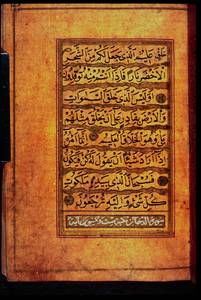 عليم الذي جعل لكم من الشجر
الأخضر نارا فإذا أنتم منه توقدون
أوليس الذي خلق السموات
والأرض بقادر على أن يخلق مثلهم
بلى وهو الخلاق العليم إنما أمره
إذا أراد شيئا أن يقول له كن فيكون
فسبحان الذي بيده ملكوت
كل شيء وإليه ترجعون
سورة الدخان